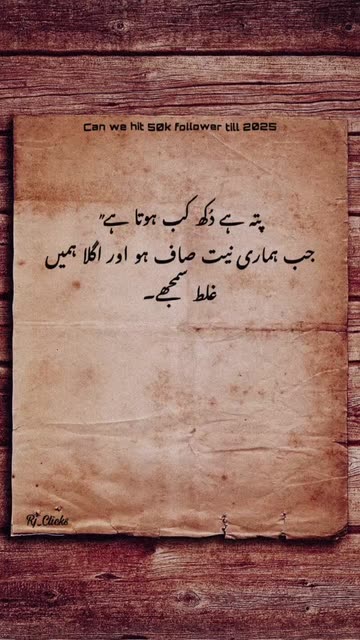 Can we hit 50k follower till 2025
پتہ ہے دُکھ کب ہوتا ہے"
جب ہماری نیت صاف ہو اور اگلا ہمیں
غلط سمجھے۔
Rj_Clicks